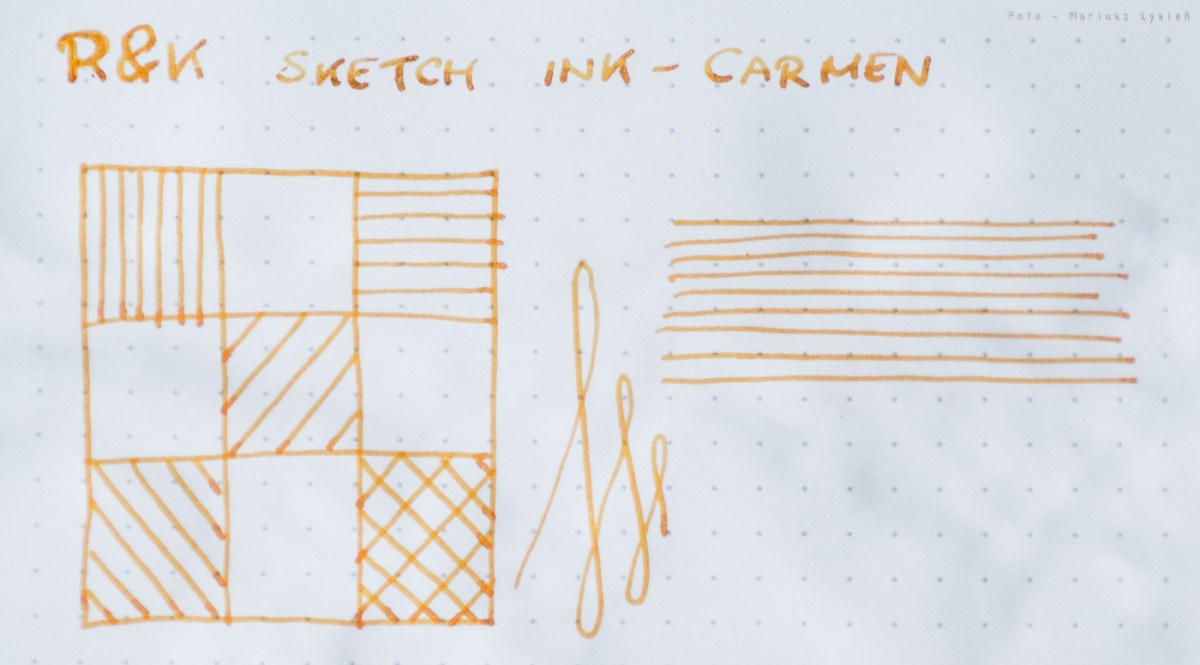 Foto - Mariusz Łysień
R&K SKETCH INK - CARMEN